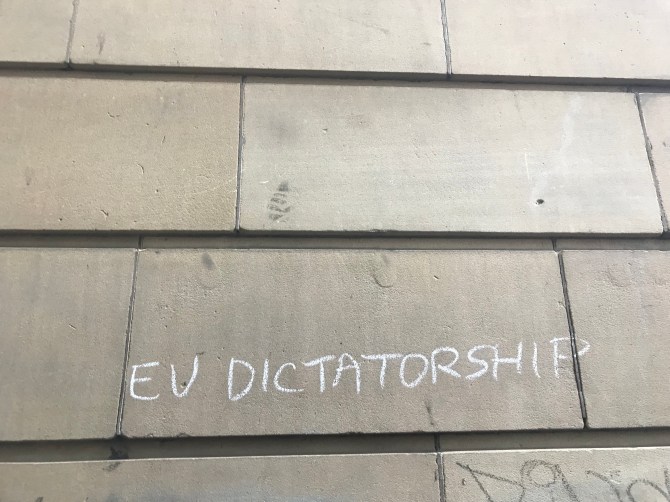 EU DICTATORSHIP